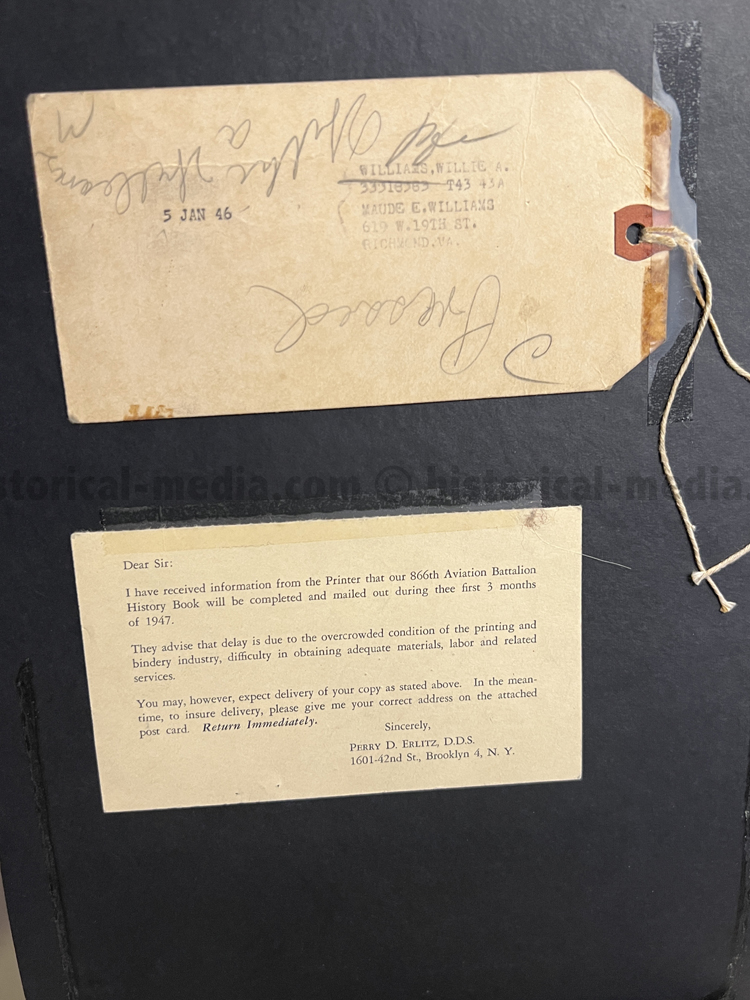 WILLIAMS, WILLIE A.
33318383 T43 43A
MAUDE E. WILLIAMS
619 W. 19TH ST.
RICHMOND, VA.
5 JAN 46
Williams
a
Pressed
historical-media.com © historical-media
Dear Sir:
I have received information from the Printer that our 866th Aviation Battalion
History Book will be completed and mailed out during thee first 3 months
of 1947.
They advise that delay is due to the overcrowded condition of the printing and
bindery industry, difficulty in obtaining adequate materials, labor and related
services.
You may, however, expect delivery of your copy as stated above. In the mean-
time, to insure delivery, please give me your correct address on the attached
post card. Return Immediately.
Sincerely,
PERRY D. ERLITZ, D.D.S.
1601-42nd St., Brooklyn 4, N. Y.